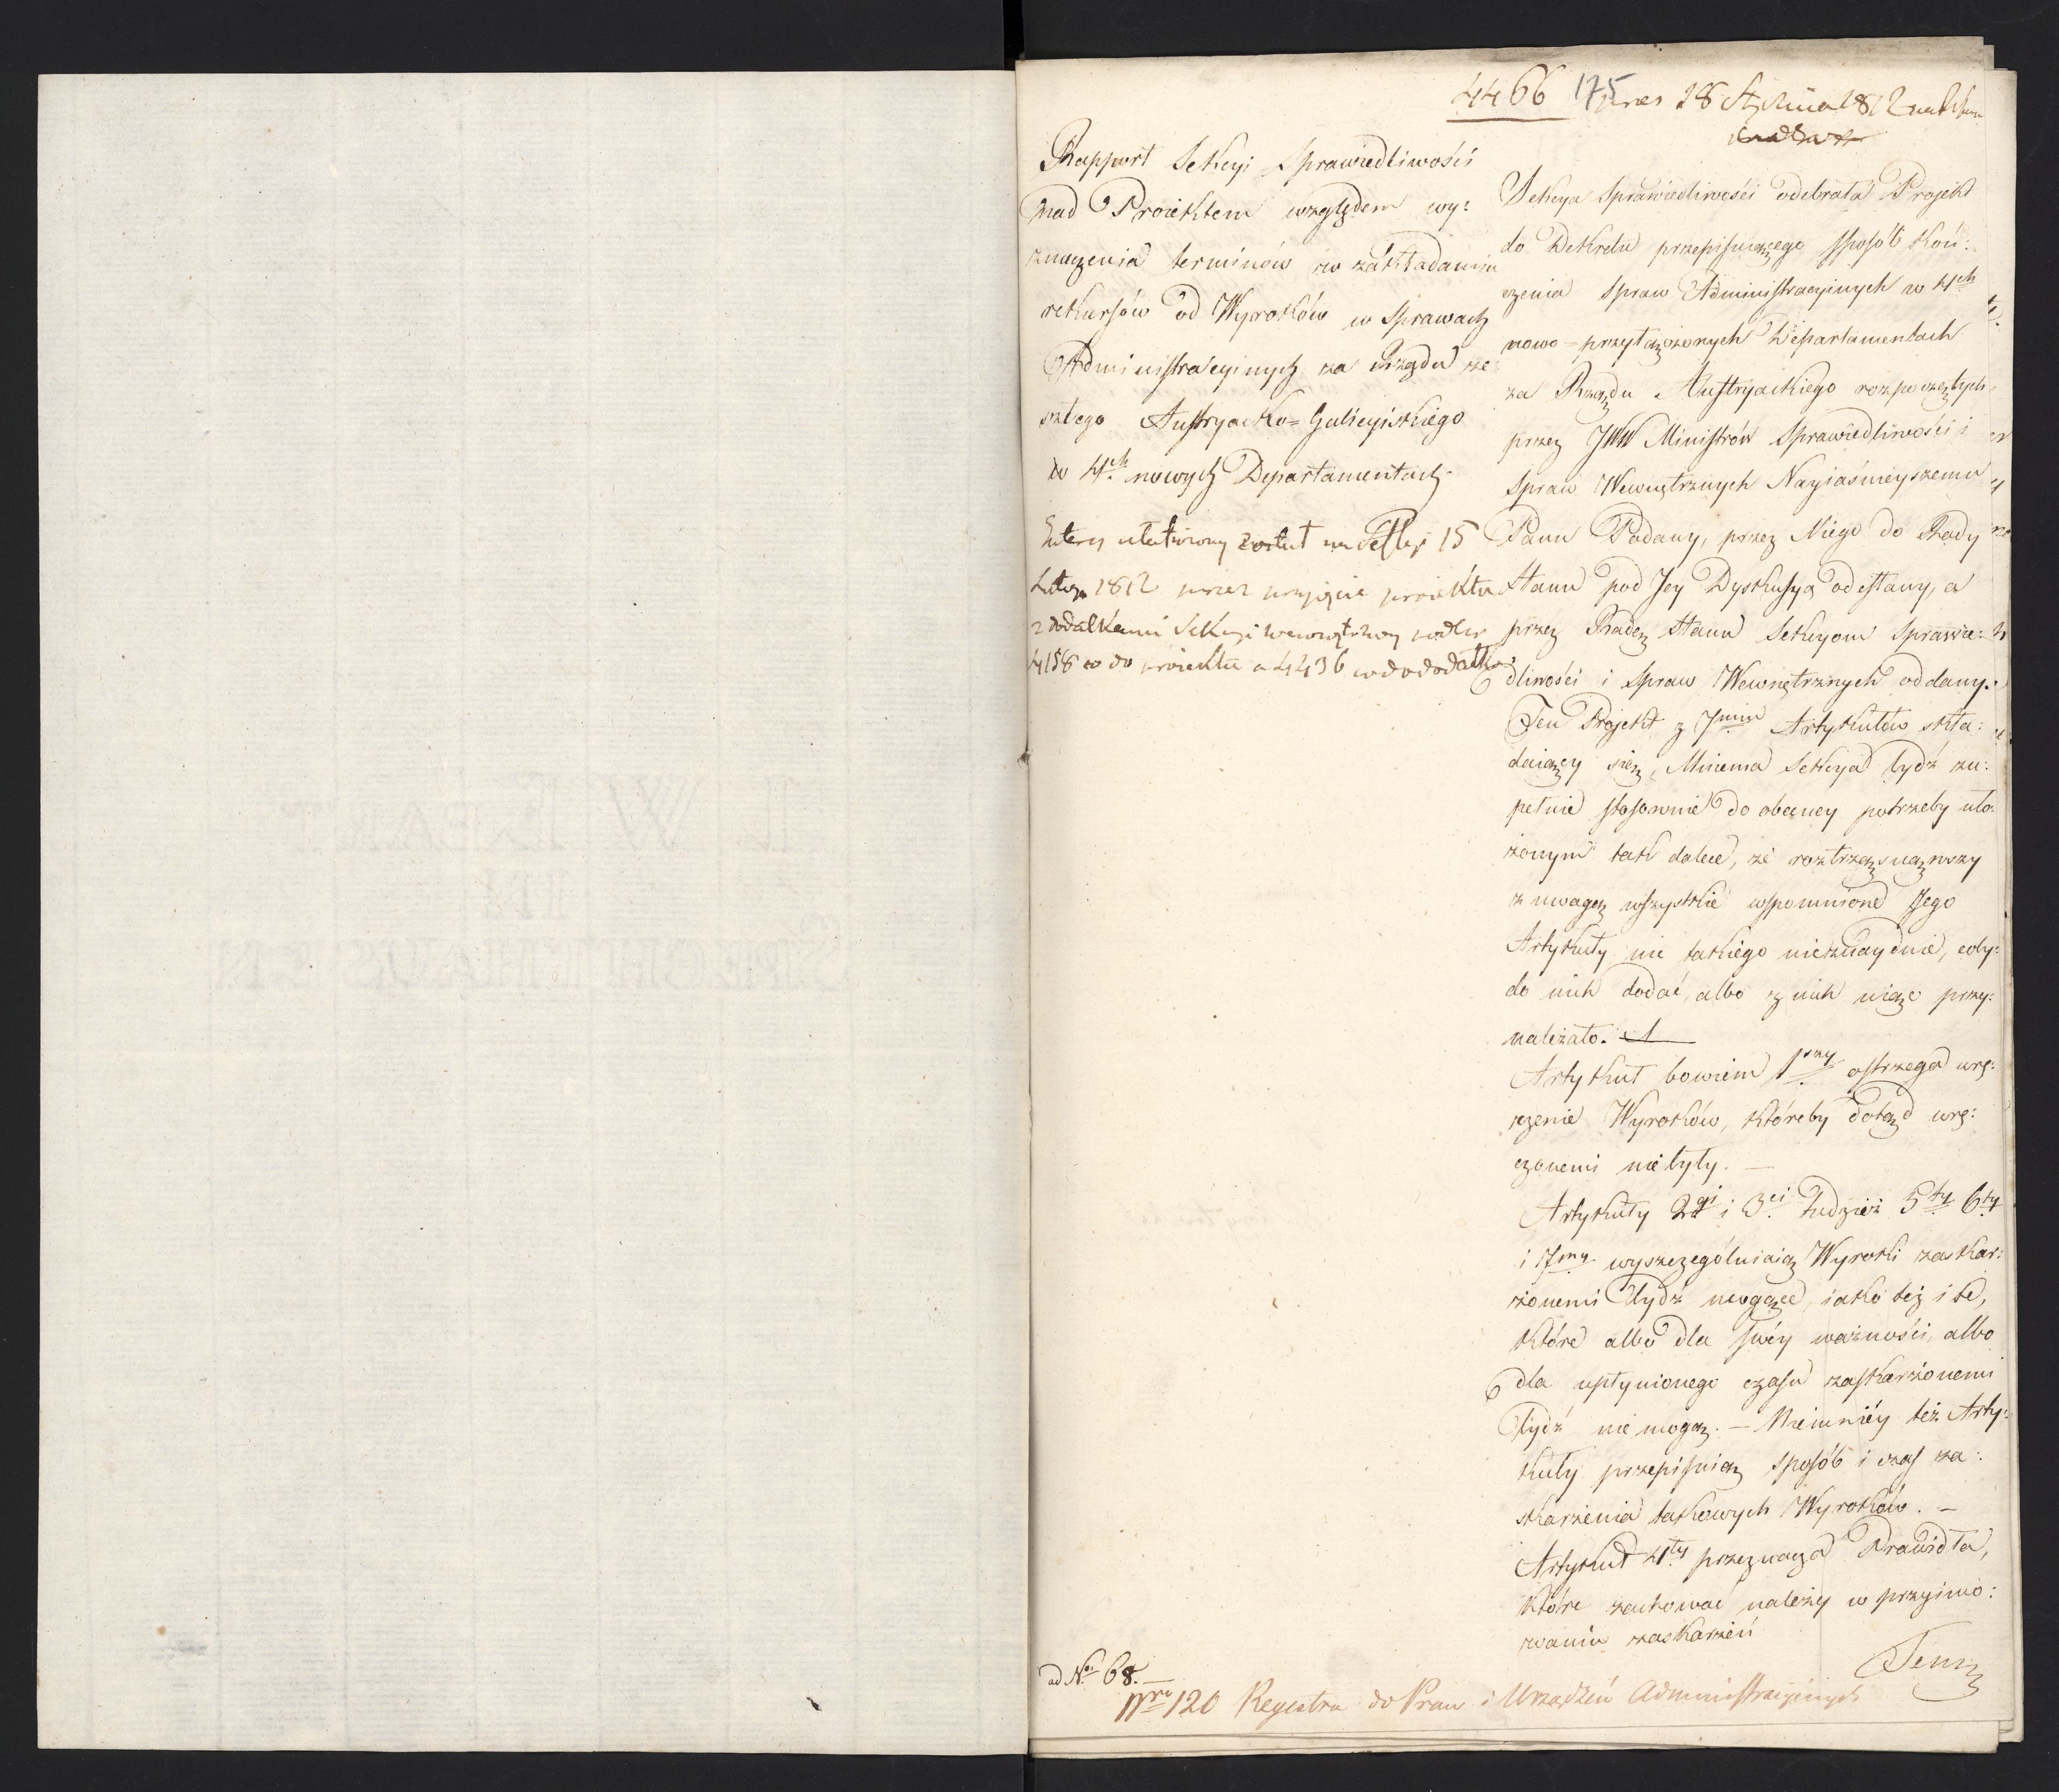 4466 175 28 Stycznia 1812
Rapport Sekcyi Sprawiedliwości
nad Proiektem względem wy:
znaczenia terminów w zakładaniu
rekursów od Wyroków w Sprawach
Administracyinych za Rządu ze:
szłego Austryacko=Galicyiskiego
do 4ch nowych Departamentach
ułatwiony został na Sessyi 15
Lutego 1812 przez przyięcie proiektu
z dodatkami Sekcyi wewnętrzney podług
co do proiektu a 4436 co do dodatków
Sekcya Sprawiedliwości odebrała Projekt
do Dekretu przepisuiącego sposób koń:
czenia Spraw Administracyinych w 4ch
nowo=przyłączonych Departamentach
za Rządu Austryackiego rozpoczętych
przez JWW Ministrów Sprawiedliwości i
Spraw Wewnętrznych Nayiaśnieyszemu
Panu Podany, przez Niego do Rady
Stanu pod Jey Dyskusyą odesłany, a
przez Radę Stanu Sekcyom Sprawie:
dliwości i Spraw Wewnętrznych oddany.
Ten Projekt z 7miu Artykułów skła:
daiący się, Mniema Sekcya bydź zu:
pełnie stosownie do obecney potrzeby uło:
żonym tak dalece, że roztrząsnąwszy
z uwagą wszystkie wspomnione Jego
Artykuły nic takiego nieznayduie, coby
do nich dodać, albo z nich uiąć przy:
należało.
Artykuł bowiem 1szy ostrzega wrę:
czenie Wyroków, któreby dotąd wrę:
czonemi niebyły. —
Artykuły 2gi i 3ci tudzież 5ty 6ty
i 7my wyszczególniaią Wyroki zaskar:
żonemi bydź mogące, iako też i te,
które albo dla swéy ważności, albo
dla upłynionego czasu zaskarżonemi
bydź nie mogą. — Niemniéy też Arty:
kuły przepisuią sposób i czas za:
skarżenia takowych Wyroków. —
Artykuł 4ty przeznacza Prawidła,
które zachować należy w przyimo:
waniu zaskarżeń
Ten
ad No 68. —
Nro 120 Regestru do Praw i Urządzeń Administracyinych